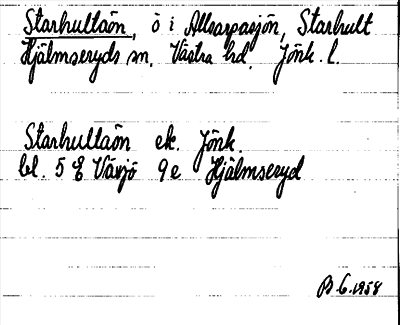 Starhultaön, ö i Allsarpasjön, Starhult
Hjälmseryds sn. Västra hd. Jönk. l.
Starhultaön ek. Jönk.
bl. 5 E Växjö 9e Hjälmseryd
B.G. 1958